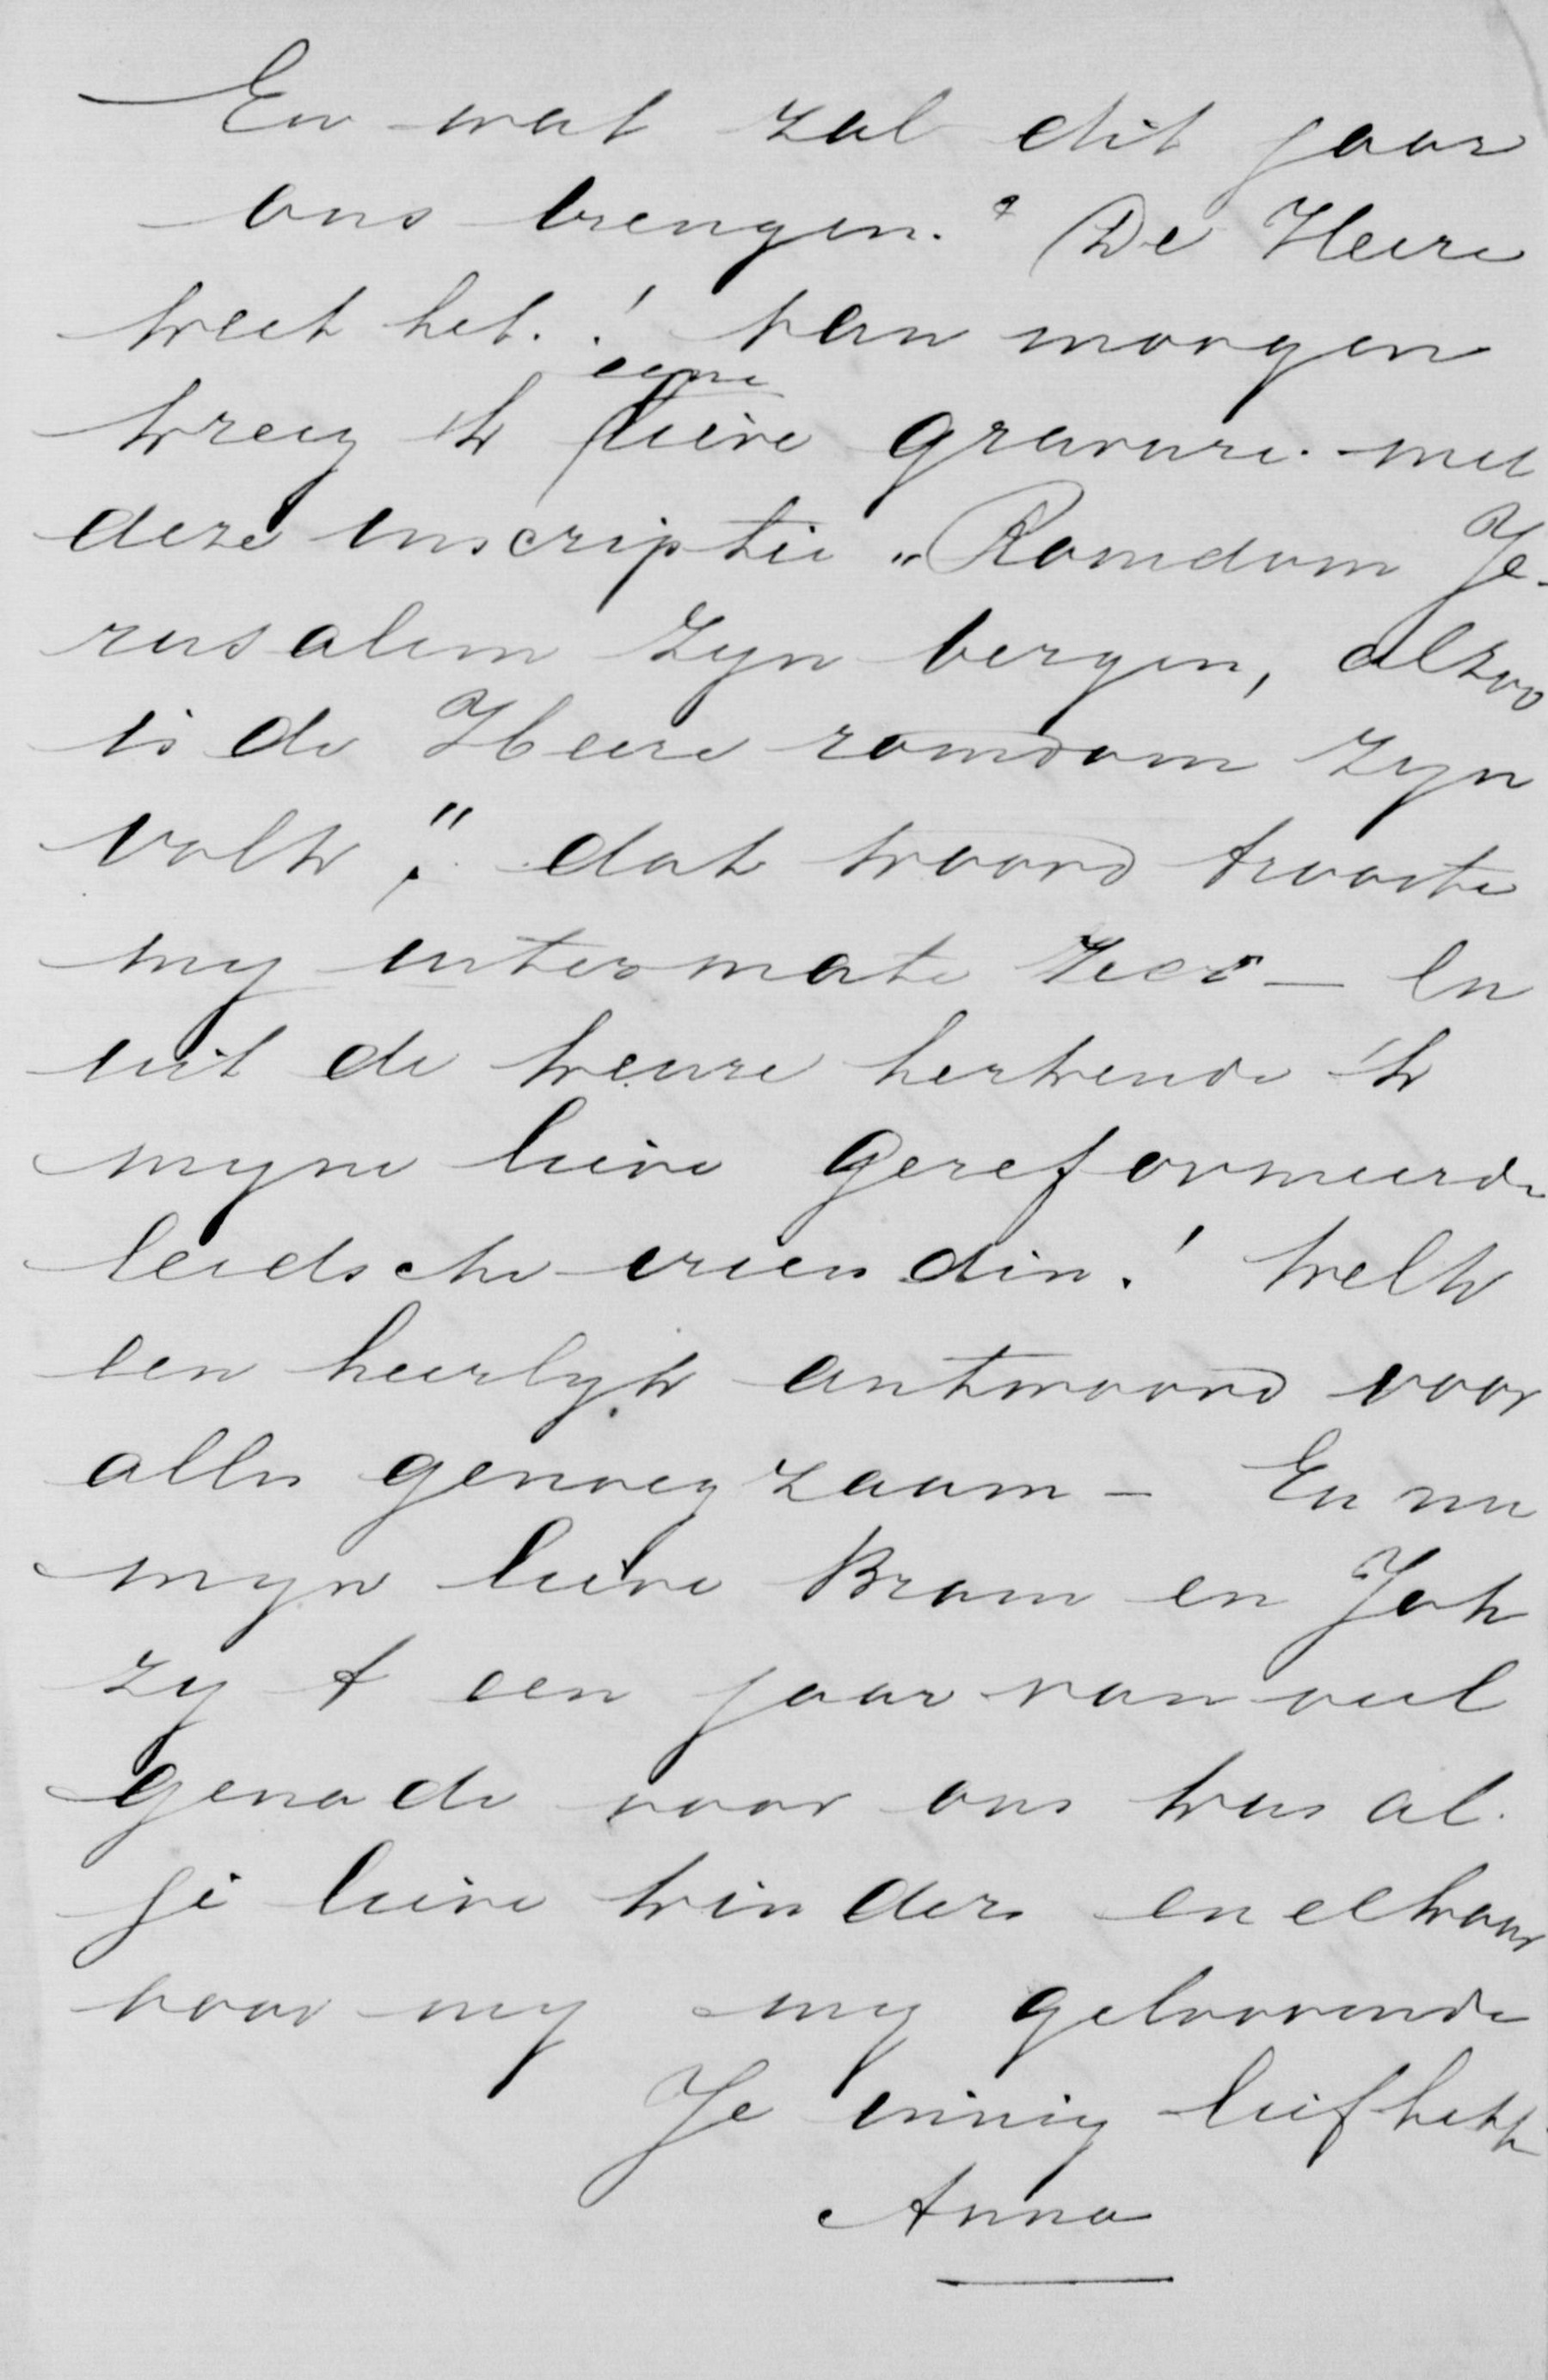 En wat zal dit jaar
ons brengen? De Heere
weet het.! van morgen
kreeg ik eene lieve gravure met
deze inscriptie „Romdom Je-
rusalem zyn bergen, alzoo
is de Heere romdom zyn
volk," dat woord trooste
my uitermate zeer - En
uit de keuze herkende ik
myne lieve gereformeerde
leidsche vriendin! Welk
een heerlyk antwoord voor
alles genoegzaam - En nu
myn lieve Bram en Joh
zy t een jaar van veel
genade voor ons twee al
je lieve kinders en elkaar
voor my my geloovende
Je innig liefheb
Anna